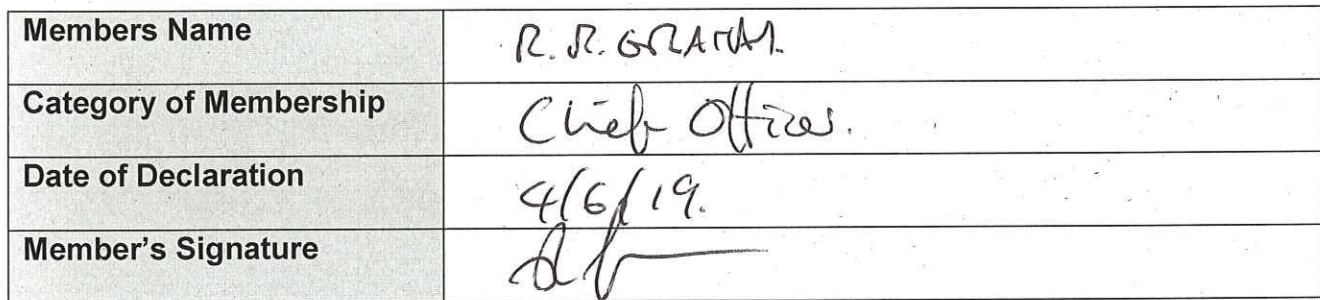 Members Name
R. R. GRAHAM.
Category of Membership
Chief Officer.
Date of Declaration
4/6/19.
Member's Signature